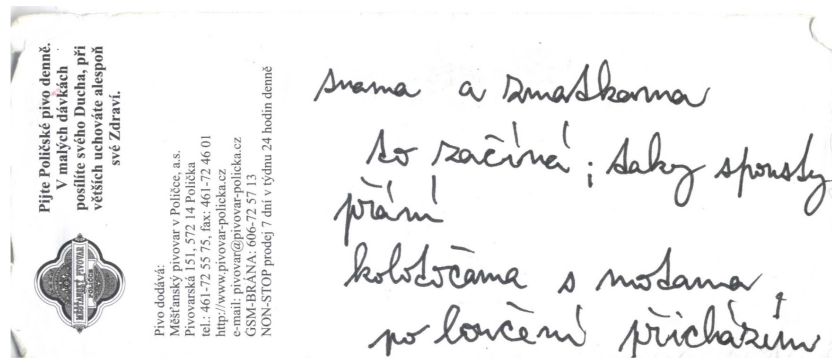 Pijte Poličské pivo denně.
V malých dávkách
posílíte svého Ducha, při
větších uchováte alespoň
své Zdraví.
MĚŠŤANSKÝ PIVOVAR
POLIČKA
Pivo dodává:
Měšťanský pivovar v Poličce, a.s.
Pivovarská 151, 572 14 Polička
tel.: 461-72 55 75, fax: 461-72 46 01
http://www.pivovar-policka.cz
e-mail: pivovar@pivovar-policka.cz
GSM-BRÁNA: 606-72 57 13
NON-STOP prodej 7 dní v týdnu 24 hodin denně
a zmatkama
to začíná; taky spousty
přání
kolotočama s notama,
po loučení přicházím